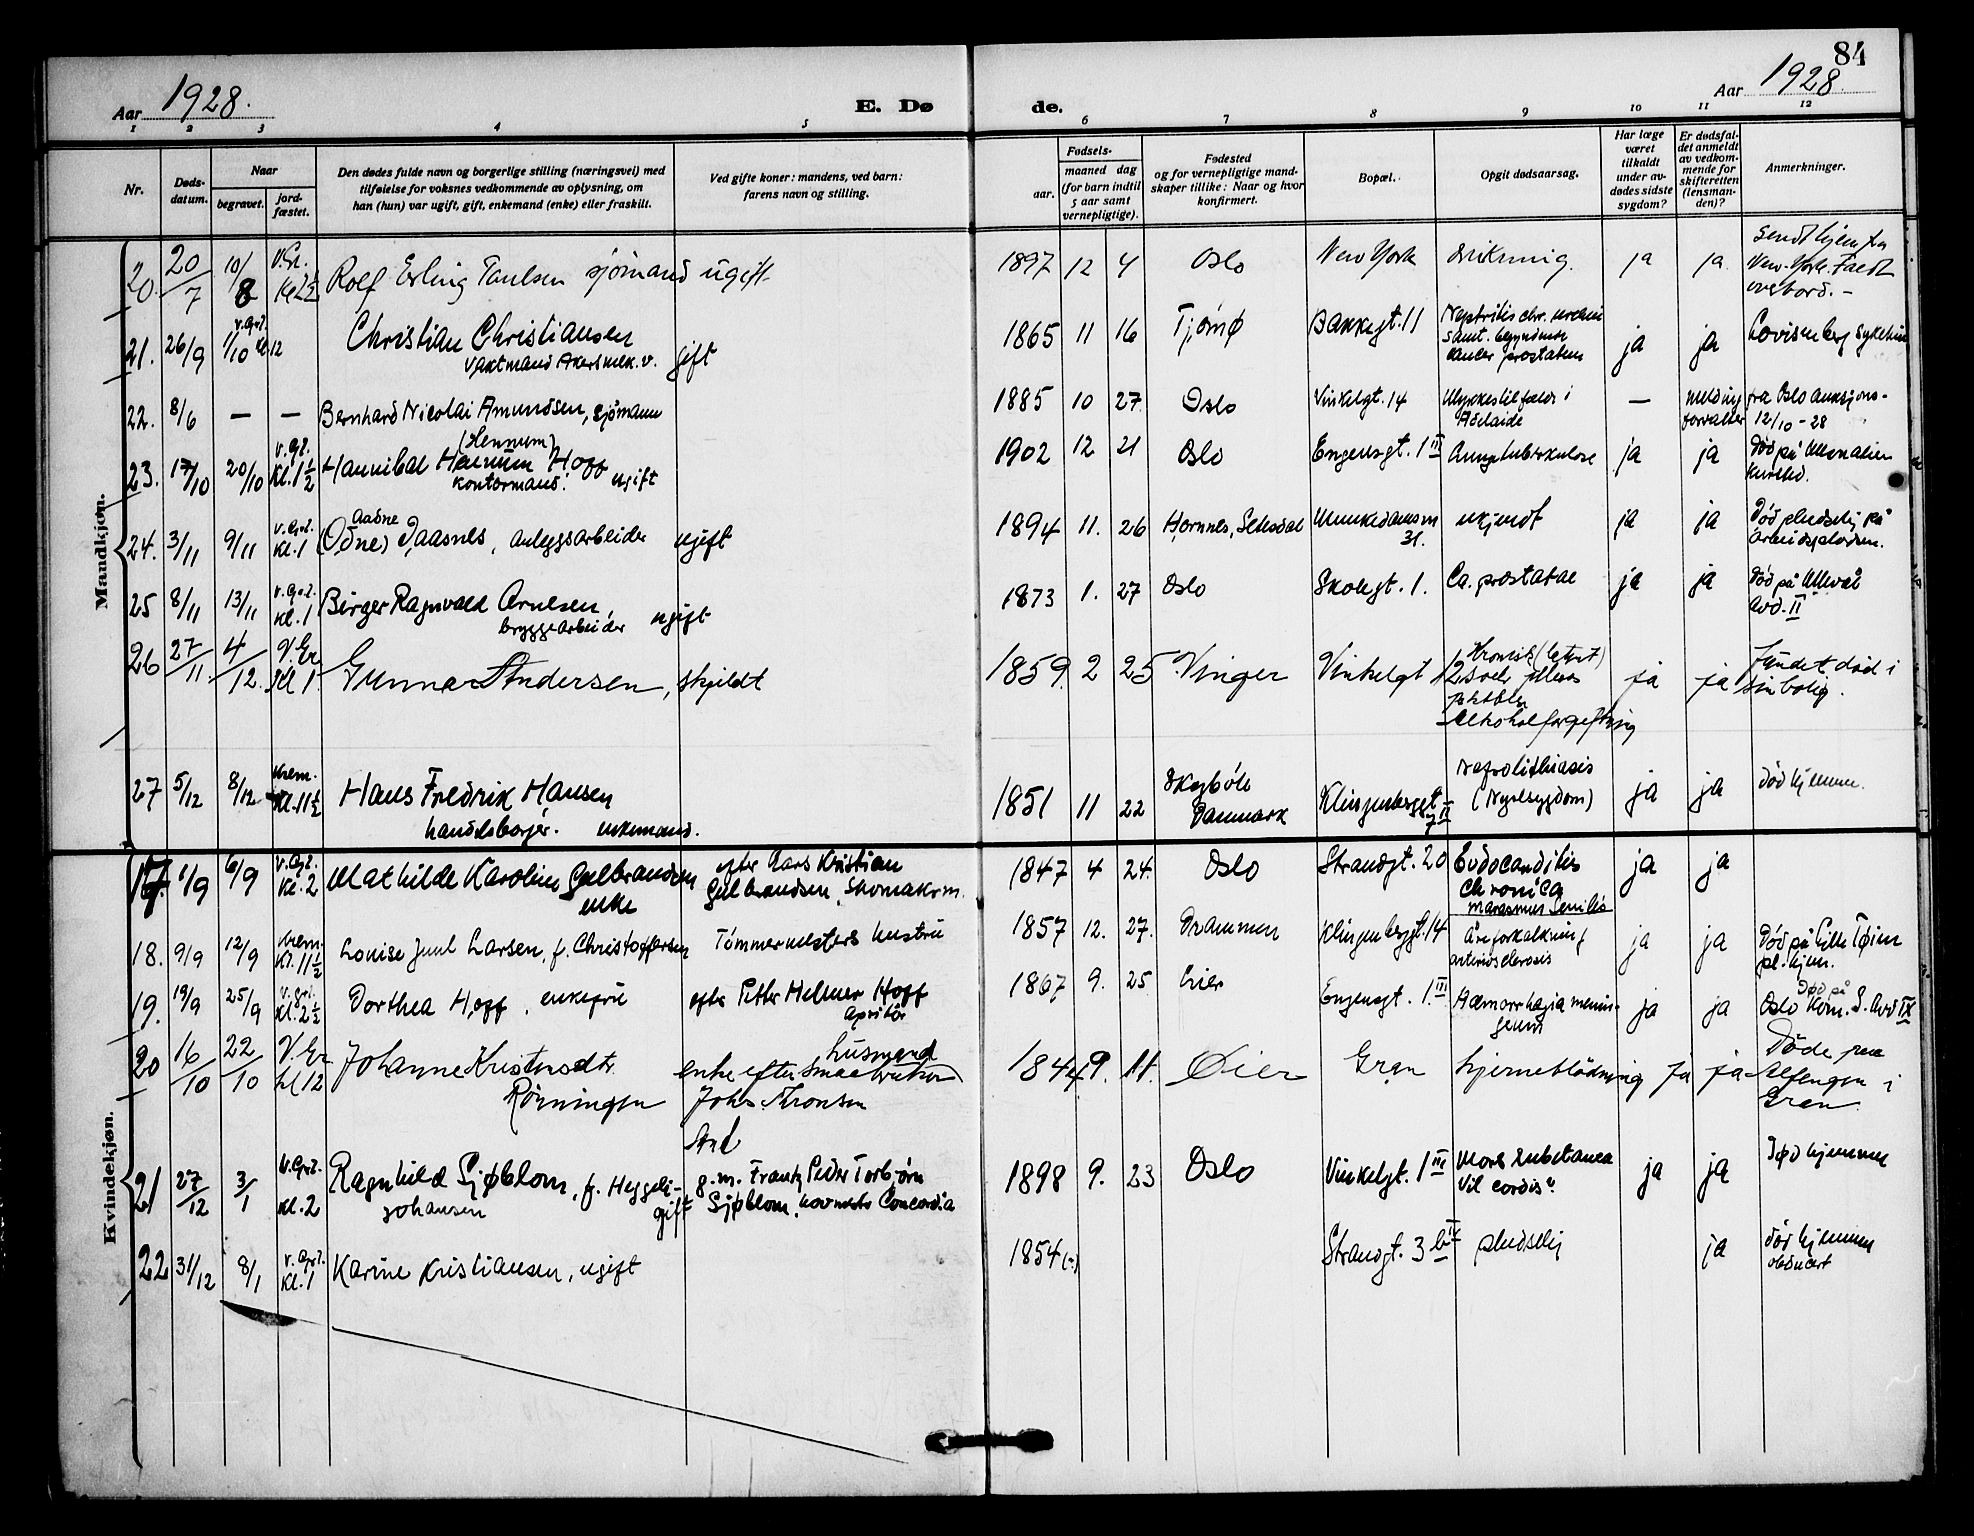 84
Aar 1928.
E. Dø
de.
Aar 1928.
1 2 3 4 5 6 7 8 9 10 11 12
Nr.
Døds-
datum.
Naar
begravet.
jord-
fæstet.
Den dødes fulde navn og borgerlige stilling (næringsvei) med
tilføielse for voksnes vedkommende av oplysning, om
han (hun) var ugift, gift, enkemand (enke) eller fraskilt.
Ved gifte koner: mandens, ved barn:
farens navn og stilling.
Fødsels-
aar.
maaned dag
(for barn indtil
5 aar samt
vernepligtige).
Fødested
og for vernepligtige mand-
skaper tillike: Naar og hvor
konfirmert.
Bopæl.
Opgit dødsaarsag.
Har læge
været
tilkaldt
under av-
dødes sidste
sygdom?
Er dødsfal-
det anmeldt
av vedkom-
mende for
skifteretten
(lensman-
den)?
Anmerkninger.
Mandkjøn.
20. 20/7 10/8 V. Gr. Kl 2½ Rolf Erling Paulsen sjömand ugift 1897 12 4 Oslo New York drukning. ja ja Sendt hjem fra
New-York. Faldt
overbord. –
21. 26/9 1/10 v. Grl. Kl. 12 Christian Christiansen 1865 11 16 Tjømø Bakkegt. 11 ja ja Lovisenberg sykehus
Vaktmand Akers mek. v. gift
samt. begyndende
cancer prostatae
22. 8/6 — — Bernhard Nicolai Amundsen, sjömann 1885 10 27 Oslo Vinkelgt. 14 Ulykkestilfælde i — melding fra Oslo auksjons-
Adelaide forvalter 12/10-28
(Hennum)
23. 17/10 20/10 v. Grl. Kl. 1½ Hannibal Hennum Hoff 1902 12 21 Oslo Engensgt. 1 III Lungetuberkulose ja ja Død på
kontormand. ugift
24. 3/11 9/11 v. Grl. Kl. 1 (Odne) Aadne Daasnes, anleggsarbeider ugift 1894 11. 26 Hornnes, Setesdal Munkedamsv. 31. ukjendt ja ja Död pludselig på
arbeidsplassen.
25 8/11 13/11 v. Grl. Kl. 1 Birger Ragnvald Arnesen, 1873 1. 27 Oslo Skolegt. 1. Ca. prostatae ja ja Död på Ullevål
bryggearbeider ugift Avd. II
26 27/11 4/12. V. Gr. Kl 1. Gunnar Andersen, skjildt 1859. 2 25 Vinger Vinkelgt 12 Kronisk (latent)
ja ja Fundet død i
sin bolig.
Alkoholforgiftning
27 5/12 8/12 Krem. Kl. 11½ Hans Fredrik Hansen 1851 11 22 Danmark Klingenberggt 7 II Nefrolithiasis
(Nyresygdom) ja ja Död hjemme.
handelsborger. enkemand.
Kvindekjøn.
17. 1/9 6/9 v. Grl. Kl. 2 Mathilde Karoline Gulbrandsen enke efter Lars Kristian
Gulbrandsen, Skomakerm. 1847 4 24. Oslo Strandgt. 20 Endocarditis
chronica
marasmus senilis ja ja
18. 9/9 12/9 Krem. Kl. 11½ Louise Juul Larsen, f. Christoffersen Tömmermesters hustru 1857 12. 27. Drammen Klingenberggt. 14 Åreforkalkning
arteriosclerosis ja ja Död på Lille Tøien
pl. hjem.
19. 19/9 25/9 v. Grl. Kl. 2½ Dorthea Hoff, enkefru efter Petter Helmer Hoff 1867 9. 25 Lier Engensgt. 1. III Hæmorrhagia menin-
geum ja ja Død på
Oslo Kom. S. Avd IX
20 16/10 22/10 V. Gr. kl 12 Johanne Kristensdtr.
Rönningen husmand
enke efter smaabruker
Johs. Aronsen 1844 9. 11. Øier Gran hjerneblödning ja ja Döde paa
i
Gran
21 27/12 3/1 v. Grl. Kl. 2 Ragnhild Sjøblom, f. Heggeli-
Johansen gift g. m. Frantz Peder Torbjørn
Sjøblom, hovmester Concordia 1898 9. 23 Oslo Vinkelgt. 1 III Mors subitanea
vit. cordis. ja ja Død hjemme
22 31/12 8/1 v. Grl. Kl. 1 Karine Kristiansen, ugift 1854 (-) Strandgt. 3 b IV pludselig ja död hjemme
obducert